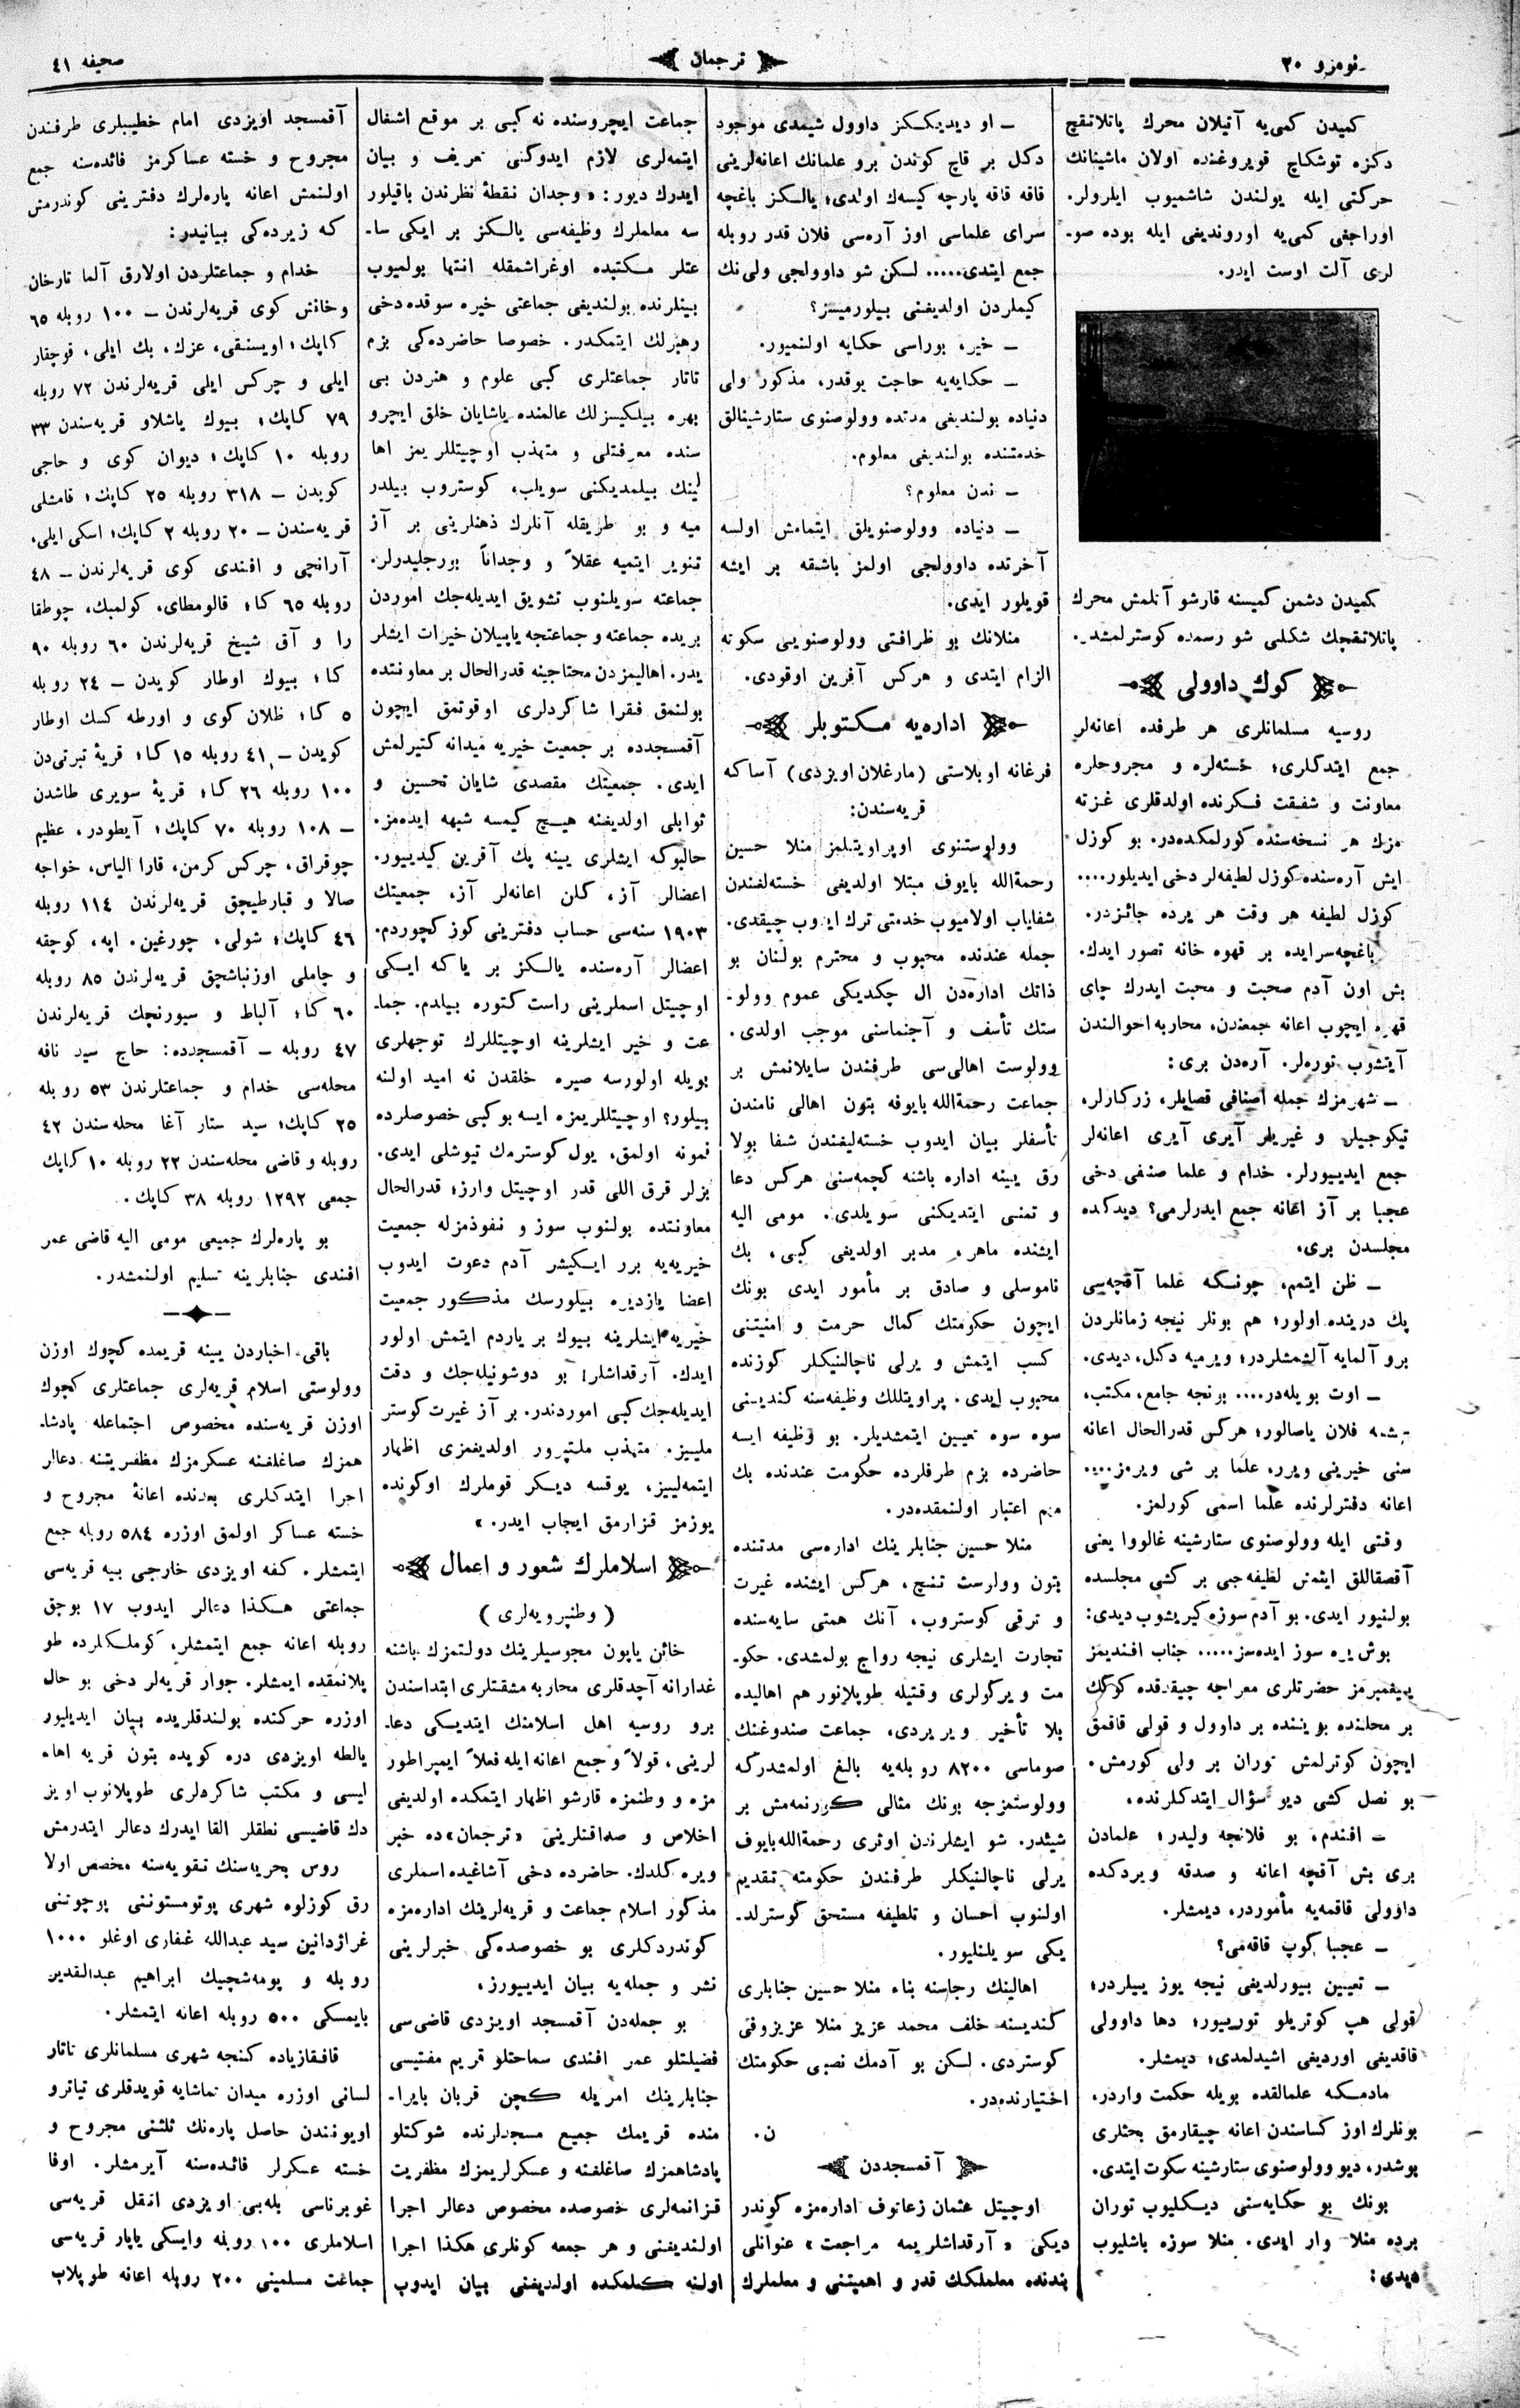 نومرو ٢٠
ترجمان
صحيفه ٤١
كميدن كمى‌يه آتيلان محرك پاتلانقچ
دكزه توشكاچ قويروغنده اولان ماشينانك
حركتى ايله يولندن شاشميوب ايلرولر.
اوراجغى كمى‌يه اوروندیغى ايله بوده صو-
لرى آلت اوست ايدر.
كميدن دشمن كميسنه قارشو آتلمش محرك
پاتلانقچك شكلى شو رسمده كوسترلمشدر.
كوك داوولى
روسيه مسلمانلرى هر طرفده اعانه‌لر
جمع ايتدكلرى؛ خسته‌لره و مجروحلره
معاونت و شفقت فكرنده اولدقلرى غزته
مزك هر نسخه‌سنده كورلمكده‌در. بو كوزل
ايش آره‌سنده كوزل لطيفه‌لر دخى ايديلور....
كوزل لطيفه هر وقت هر يرده جائزدر.
باغچه‌سرايده بر قهوه خانه تصور ايدك.
بش اون آدم صحبت و محبت ايدرك چاى
قهوه ايچوب اعانه جمعندن، محاربه احوالندن
آيتشوب توره‌لر. آره‌دن برى:
— شهرمزك جمله اصنافى قصابلر، زركارلر،
تيكوجيلر و غيريلر آيرى آيرى اعانه‌لر
جمع ايدييورلر. خدام و علما صنفى دخى
عجبا بر آز اعانه جمع ايدرلرمى؟ ديدكده
مجلسدن برى،
— ظن ايتمم، چونكه علما آقچه‌سى
پك درينده اولور؛ هم بونلر نيجه زمانلردن
برو آلمايه آلشمشلردر؛ ويرميه دكل، ديدى.
— اوت بويله‌در.... بونجه جامع، مكتب،
چشمه فلان ياصالور؛ هركس قدرالحال اعانه
سنى خيرينى ويرر، علما بر شى ويرمز....
اعانه دفترلرنده علما اسمى كورلمز.
وقتى ايله وولوصنوى ستارشينه غالووا يعنى
آقصقاللق ايتمش لطيفه‌جى بر كشى مجلسده
بولنيور ايدى. بو آدم سوزه كيريشوب ديدى:
بوش يره سوز ايده‌سز..... جناب افنديمز
پيغمبرمز حضرتلرى معراجه چيقدقده كوكك
بر محلنده بويننده بر داوول و قولى قاقمق
ايچون كوترلمش توران بر ولى كورمش.
بو نصل كشى ديو سؤال ايتدكلرنده،
— افندم، بو فلانچه وليدر؛ علمادن
برى بش آقچه اعانه و صدقه ويردكده
داوولى قاقمه‌يه مأموردر، ديمشلر.
— عجبا كوپ قاقه‌مى؟
— تعيين بيورلديغى نيجه يوز ييلردر؛
قولى هپ كوتريلو تورييور؛ دها داوولى
قاقديغى اورديغى اشيدلمدى؛ ديمشلر.
مادمكه علمالقده بويله حكمت واردر،
بونلرك اوز كساسندن اعانه چيقارمق بحثلرى
بوشدر، ديو وولوصنوى ستارشينه سكوت ايتدى.
بونك بو حكايه‌سنى ديكليوب توران
برده منلا وار ايدى. منلا سوزه باشليوب
ديدى:
— او ديديككز داوول شيمدى موجود
دكل بر قاچ كوندن برو علمانك اعانه‌لرينى
قاقه قاقه پارچه كيسه‌ك اولدى؛ يالكز باغچه
سراى علماسى اوز آره‌سى فلان قدر روبله
جمع ايتدى..... لكن شو داوولجى ولى نك
كيملردن اولديغنى بيلورميسز؟
— خير، بوراسى حكايه اولنميور.
— حكايه‌يه حاجت يوقدر، مذكور ولى
دنياده بولنديغى مدتده وولوصنوى ستارشينالق
خدمتنده بولنديغى معلوم.
— ندن معلوم؟
— دنياده وولوصنويلق ايتمامش اولسه
آخرتده داوولجى اولمز باشقه بر ايشه
قويلور ايدى.
منلانك بو ظرافتى وولوصنويى سكوته
الزام ايتدى و هركس آفرين اوقودى.
اداره‌يه مكتوبلر
فرغانه اوبلاستى (مارغلان اويزدى) آساكه
قريه‌سندن:
وولوستنوى اوپراويتلمز منلا حسين
رحمةالله بايوف مبتلا اولديغى خسته‌لغندن
شفاياب اولاميوب خدمتى ترك ايدوب چيقدى.
جمله عندنده محبوب و محترم بولنان بو
ذاتك اداره‌دن ال چكديكى عموم وولو-
ستك تأسف و آجنماسنى موجب اولدى.
وولوست اهالى‌سى طرفندن سايلانمش بر
جماعت رحمةالله بايوفه بتون اهالى نامندن
تأسفلر بيان ايدوب خسته‌ليغندن شفا بولا
رق يينه اداره باشنه كچمه‌سنى هركس دعا
و تمنى ايتديكنى سويلدى. مومى اليه
ايشنده ماهر، مدبر اولديغى كبى، بك
ناموسلى و صادق بر مأمور ايدى بونك
ايچون حكومتك كمال حرمت و امنيتنى
كسب ايتمش و يرلى ناچالنيكلر كوزنده
محبوب ايدى. پراويتللك وظيفه‌سنه كندينى
سوه سوه تعيين ايتمشديلر. بو وظيفه ايسه
حاضرده بزم طرفلرده حكومت عندنده بك
مهم اعتبار اولنمقده‌در.
منلا حسين جنابلرينك اداره‌سى مدتنده
بتون وولوست تنچ، هركس ايشنده غيرت
و ترقى كوستروب، آنك همتى سايه‌سنده
تجارت ايشلرى نيجه رواج بولمشدى. حكو-
مت ويركولرى وقتيله طوپلانور هم اهاليده
بلا تأخير ويريردى، جماعت صندوغنك
صوماسى ٨٢٠٠ روبله‌يه بالغ اولمشدركه
وولوستمزجه بونك مثالى كورنمه‌مش بر
شيئدر. شو ايشلرندن اوترى رحمةالله بايوف
يرلى ناچالنيكلر طرفندن حكومته تقديم
اولنوب احسان و تلطيفه مستحق كوسترلد-
يكى سويلنليور.
اهالينك رجاسنه بناء منلا حسين جنابلرى
كنديسنه خلف محمد عزيز منلا عزيزوفى
كوستردى. لكن بو آدمك نصبى حكومتك
اختيارنده‌در.
ن.
آقمسجددن
اوچيتل عثمان زعاتوف اداره‌مزه كوندر
ديكى « آرقداشلريمه مراجعت » عنوانلى
بندنده معلملكك قدر و اهميتنى و معلملرك
جماعت ايچروسنده نه كبى بر موقع اشغال
ايتمه‌لرى لازم ايدوكنى تعريف و بيان
ايدرك ديور: « وجدان نقطهٔ نظرندن باقيلور
سه معلملرك وظيفه‌سى يالكز بر ايكى سا-
عتلر مكتبده اوغراشمقله انتها بولميوب
بينلرنده بولنديغى جماعتى خيره سوقده دخى
رهبرلك ايتمكدر. خصوصا حاضرده‌كى بزم
تاتار جماعتلرى كبى علوم و هنردن بى
بهره بيلكيسزلك عالمنده ياشايان خلق ايچرو
سنده معرفتلى و متهذب اوچيتللريمز اها
لينك بيلمديكنى سويلب، كوستروب بيلدر
ميه و بو طريقله آنلرك ذهنلرينى بر آز
تنوير ايتميه عقلاً و وجداناً بورجليدرلر.
جماعته سويلنوب تشويق ايديله‌جك اموردن
بريده جماعته و جماعتجه ياپيلان خيرات ايشلر
يدر. اهاليمزدن محتاجينه قدرالحال بر معاونتده
بولنمق فقرا شاكردلرى اوقوتمق ايچون
آقمسجدده بر جمعيت خيريه ميدانه كتيرلمش
ايدى. جمعيتك مقصدى شايان تحسين و
ثوابلى اولديغنه هيچ كيمسه شبهه ايده‌مز.
حالبوكه ايشلرى يينه پك آقرين كيدييور.
اعضالر آز، كلن اعانه‌لر آز، جمعيتك
١٩٠٣ سنه‌سى حساب دفترينى كوز كچوردم.
اعضالر آره‌سنده يالكز بر ياكه ايكى
اوچيتل اسملرينى راست كتوره بيلدم. جما-
عت و خير ايشلرينه اوچيتللرك توجهلرى
بويله اولورسه صيره خلقدن نه اميد اولنه
بيلور؟ اوچيتللريمزه ايسه بو كبى خصوصلرده
نمونه اولمق، يول كوسترمك تيوشلى ايدى.
بزلر قرق اللى قدر اوچيتل وارز؛ قدرالحال
معاونتده بولنوب سوز و نفوذمزله جمعيت
خيريه‌يه برر ايكيشر آدم دعوت ايدوب
اعضا يازديره بيلورسك مذكور جمعيت
خيريه ايشلرينه بيوك بر ياردم ايتمش اولور
ايدك. آرقداشلر! بو دوشونيله‌جك و دقت
ايديله‌جك كبى اموردندر. بر آز غيرت كوستر
ملييز. متهذب ملتپرور اولديغمزى اظهار
ايتمه‌لييز، يوقسه ديكر قوملرك اوكونده
يوزمز قزارمق ايجاب ايدر. »
اسلاملرك شعور و اعمال
( وطنپرويه‌لرى )
خائن ياپون مجوسيلرينك دولتمزك باشنه
غدارانه آچدقلرى محاربه مشقتلرى ابتداسندن
برو روسيه اهل اسلامنك ايتديكى دعا-
لرينى، قولاً و جمع اعانه ايله فعلاً ايمپراطور
مزه و وطنمزه قارشو اظهار ايتمكده اولديغى
اخلاص و صداقتلرينى « ترجمان » ده خبر
ويره كلدك. حاضرده دخى آشاغيده اسملرى
مذكور اسلام جماعت و قريه‌لرينك اداره‌مزه
كوندردكلرى بو خصوصده‌كى خبرلرينى
نشر و جمله‌يه بيان ايدييورز،
بو جمله‌دن آقمسجد اويزدى قاضى‌سى
فضيلتلو عمر افندى سماحتلو قريم مفتيسى
جنابلرينك امريله كچن قربان بايرا-
منده قريمك جميع مسجدلرنده شوكتلو
پادشاهمزك صاغلغنه و عسكرلريمزك مظفريت
قزانمه‌لرى خصوصده مخصوص دعالر اجرا
اولنديغنى و هر جمعه كونلرى هكذا اجرا
اولنه كلمكده اولديغنى بيان ايدوب
آقمسجد اويزدى امام خطيبلرى طرفندن
مجروح و خسته عساكرمز فائده‌سنه جمع
اولنمش اعانه پاره‌لرك دفترينى كوندرمش
كه زيرده‌كى بيانيدر:
خدام و جماعتلردن اولارق آلما تارخان
و خانش كوى قريه‌لرندن — ١٠٠ روبله ٦٥
كاپك؛ اويسنقى، عزك، بك ايلى، قوچقار
ايلى و چركس ايلى قريه‌لرندن ٧٢ روبله
٧٩ كاپك؛ بيوك ياشلاو قريه‌سندن ٣٣
روبله ١٠ كاپك؛ ديوان كوى و حاجى
كويدن — ٣١٨ روبله ٢٥ كاپك؛ قامشلى
قريه‌سندن — ٢٠ روبله ٢ كاپك؛ اسكى ايلى،
آرانچى و افندى كوى قريه‌لرندن — ٤٨
روبله ٦٥ كا؛ قالومطاى، كولمبك، چوطقا
را و آق شيخ قريه‌لرندن ٦٠ روبله ٩٠
كا؛ بيوك اوطار كويدن — ٢٤ روبله
٥ كا؛ ظلان كوى و اورطه كسك اوطار
كويدن — ٤١ روبله ١٥ كا؛ قريهٔ تبرتى‌دن
١٠٠ روبله ٢٦ كا؛ قريهٔ سويرى طاشدن
— ١٠٨ روبله ٧٠ كاپك؛ آيطودر، عظيم
چوقراق، چركس كرمن، قارا الياس، خواجه
صالا و قبارطيچق قريه‌لرندن ١١٤ روبله
٤٦ كاپك؛ شولى، چورغين. اپه، كوچقه
و چاملى اوزنباشچق قريه‌لرندن ٨٥ روبله
٦٠ كا؛ آلباط و سيورنچك قريه‌لرندن
٤٧ روبله — آقمسجدده: حاج سيد نافه
محله‌سى خدام و جماعتلرندن ٥٣ روبله
٢٥ كاپك؛ سيد ستار آغا محله‌سندن ٤٢
روبله و قاضى محله‌سندن ٢٢ روبله ١٠ كاپك
جمعى ١٢٩٢ روبله ٣٨ كاپك.
بو پاره‌لرك جميعى مومى اليه قاضى عمر
افندى جنابلرينه تسليم اولنمشدر.
باقى اخباردن يينه قريمده كچوك اوزن
وولوستى اسلام قريه‌لرى جماعتلرى كچوك
اوزن قريه‌سنده مخصوص اجتماعله پادشا-
همزك صاغلغنه عسكرمزك مظفريتنه دعالر
اجرا ايتدكلرى بعدنده اعانهٔ مجروح و
خسته عساكر اولمق اوزره ٥٨٤ روبله جمع
ايتمشلر. كفه اويزدى خارجى بيه قريه‌سى
جماعتى هكذا دعالر ايدوب ١٧ بوچق
روبله اعانه جمع ايتمشلر، كوملكلرده طو
پلانمقده ايمشلر. جوار قريه‌لر دخى بو حال
اوزره حركتده بولندقلريده بيان ايديليور
يالطه اويزدى دره كويده بتون قريه اها-
ليسى و مكتب شاكردلرى طوپلانوب اويز
دك قاضيسى نطقلر القا ايدرك دعالر ايتدرمش
روس بحريه‌سنك تقويه‌سنه مخصص اولا
رق كوزلوه شهرى پوتومستوننى پوچوتنى
غراژدانين سيد عبدالله غفارى اوغلو ١٠٠٠
روبله و پومه‌شچيك ابراهيم عبدالقدير
بايمسكى ٥٠٠ روبله اعانه ايتمشلر.
قافقازياده كنجه شهرى مسلمانلرى تاتار
لسانى اوزره ميدان تماشايه قويدقلرى تياترو
اويونندن حاصل پاره‌نك ثلثنى مجروح و
خسته عسكرلر فائده‌سنه آيرمشلر. اوفا
غوبرناسى بله‌بى اويزدى انقل قريه‌سى
اسلاملرى ١٠٠ روبله و ايسكى ياپار قريه‌سى
جماعت مسلمينى ٢٠٠ روبله اعانه طوپلاپ